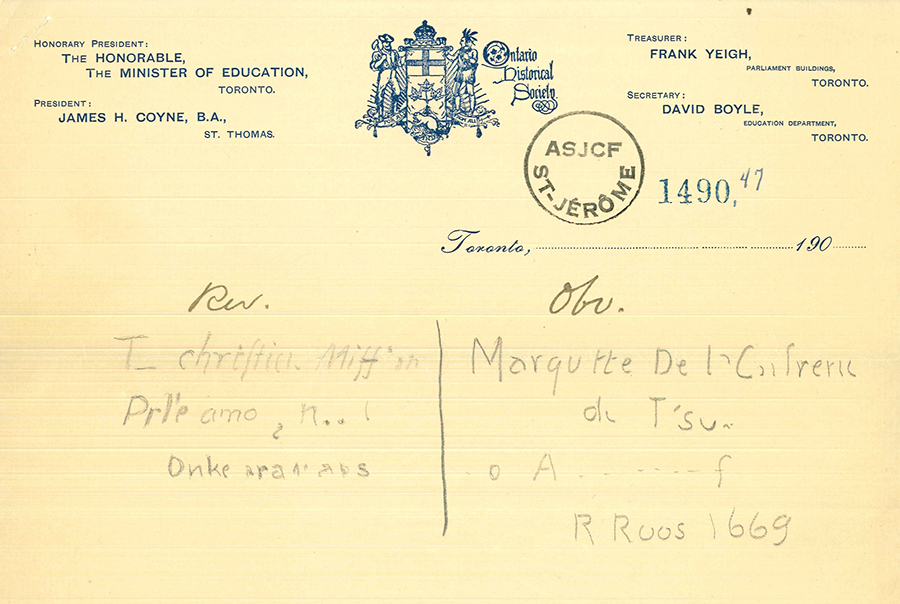 HONORARY PRESIDENT:
THE HONORABLE,
THE MINISTER OF EDUCATION,
TORONTO.
PRESIDENT:
JAMES H. COYNE, B.A.,
ST. THOMAS.
Ontario
Historical
Society.
TREASURER:
FRANK YEIGH,
PARLIAMENT BUILDINGS,
TORONTO.
SECRETARY:
DAVID BOYLE,
EDUCATION DEPARTMENT,
TORONTO.
ASJCF
ST-JÉRÔME
1490, 47
Toronto, 190
Rev.
christien Miffion
amo
Onke
Obv.
De
de T'su
o A - - - - - - f
R Roos 1669